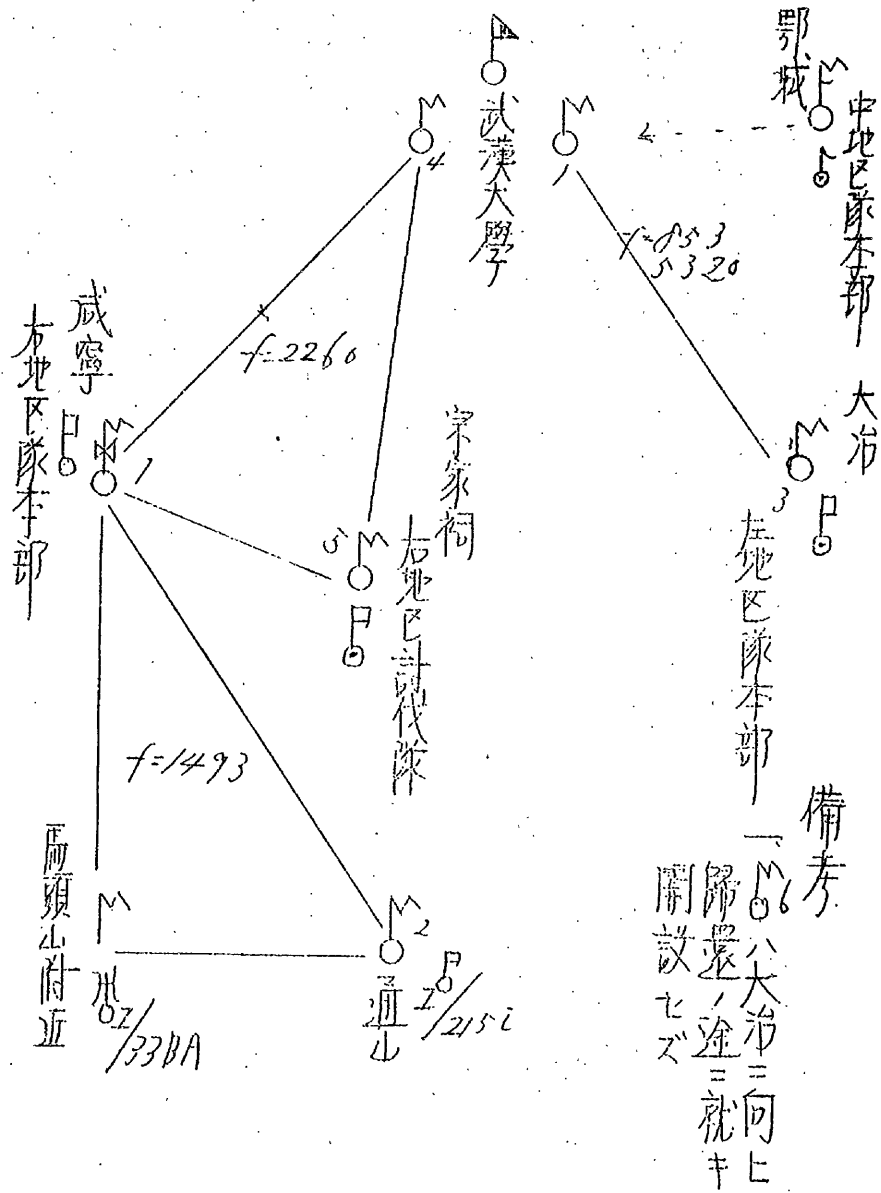 鄂城
中地区隊本部
武漢大學
4
1
f=853
5320
大冶
3
左地区隊本部
咸寧
右地区隊本部
1
f=2260
宋家祠
5
右地区討伐隊
f=1493
馬頭山附近
I/33BA
2
通山
I/215i
備考
一、6ハ大冶ニ向ヒ
歸還ノ途ニ就キ
開設セズ